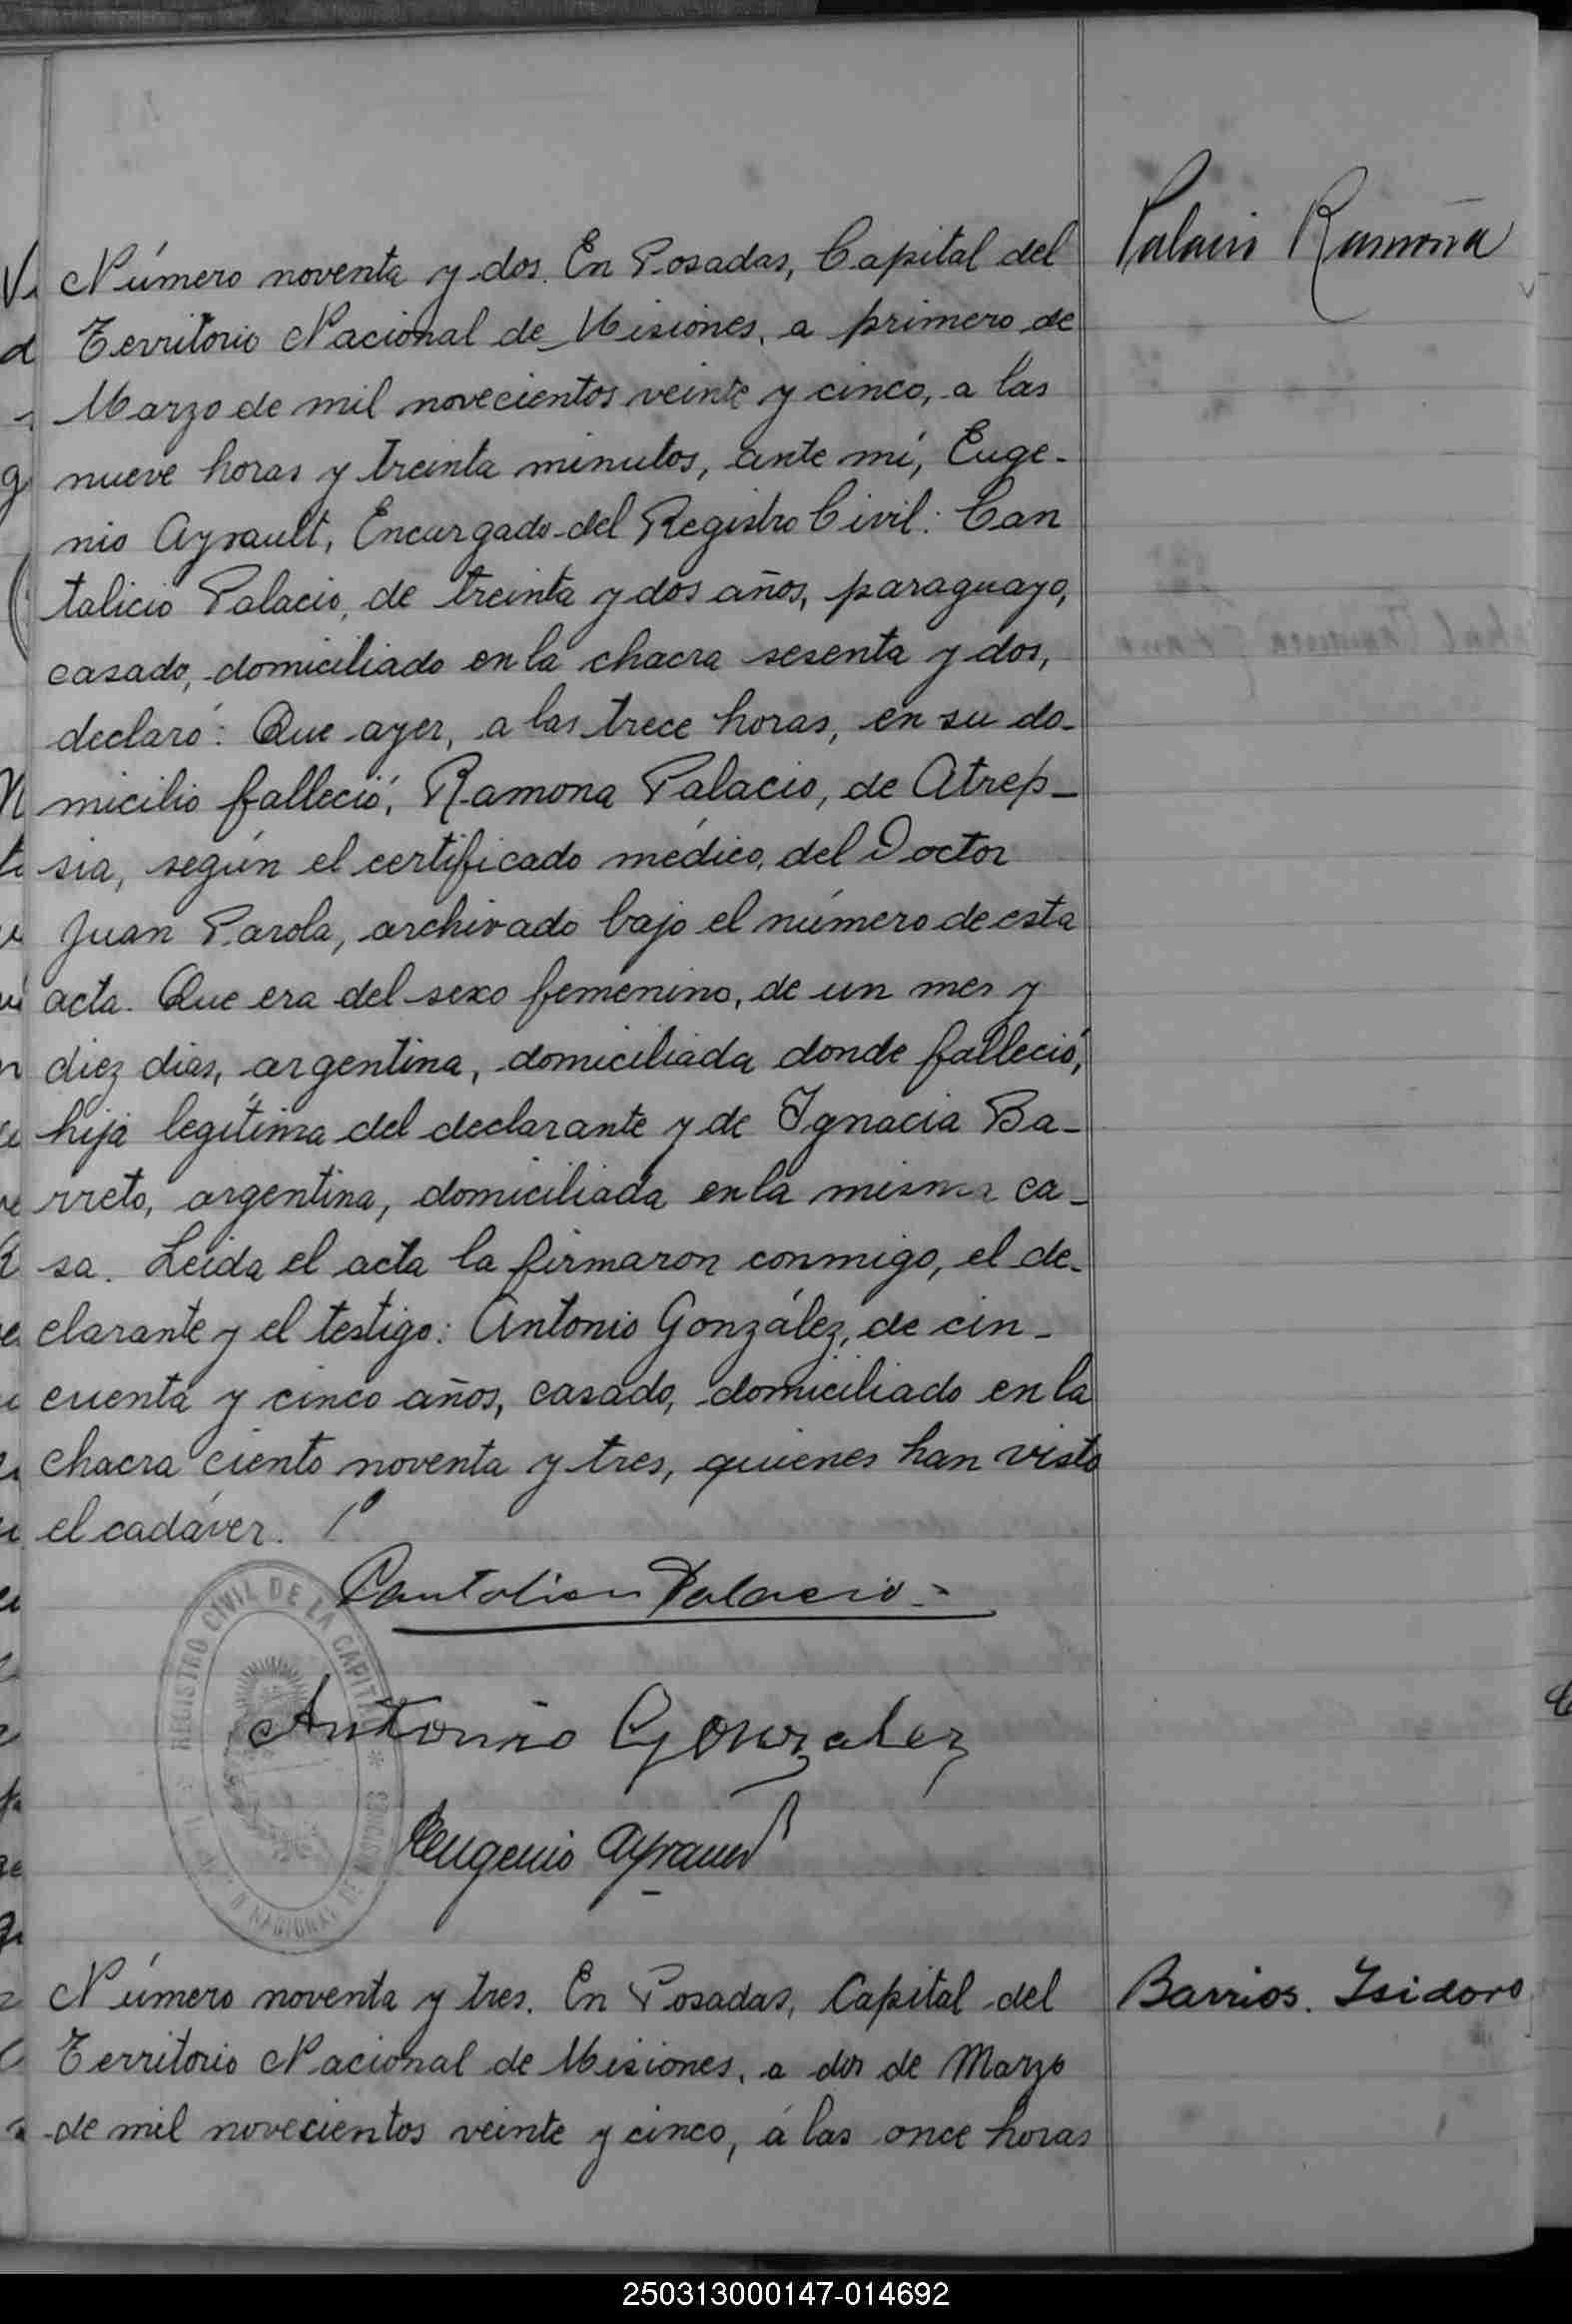 Palacio Ramona
Número noventa y dos. En Posadas, Capital del
Territorio Nacional de Misiones, a primero de
Marzo de mil novecientos veinte y cinco, a las
nueve horas y treinta minutos, ante mí, Euge-
nio Ayrault, Encargado del Registro Civil: Can
talicio Palacio, de treinta y dos años, paraguayo,
casado, domiciliado en la chacra sesenta y dos,
declaró: Que ayer, a las trece horas, en su do-
micilio falleció, Ramona Palacio, de Atrep-
sia, según el certificado médico, del Doctor
Juan Parola, archivado bajo el número de esta
acta. Que era del sexo femenino, de un mes y
diez dias, argentina, domiciliada donde falleció,
hija legítima del declarante y de Ignacia Ba-
rreto, argentina, domiciliada en la misma ca-
sa. Leida el acta la firmaron conmigo, el de-
clarante y el testigo: Antonio González, de cin-
cuenta y cinco años, casado, domiciliado en la
chacra ciento noventa y tres, quienes han visto
el cadáver.
Cantalicio Palacio
Antonio Gonzalez
Eugenio Ayrault
REGISTRO CIVIL DE LA CAPITAL
NACIONAL DE MISIONES
Número noventa y tres. En Posadas, Capital del
Barrios. Isidoro
Territorio Nacional de Misiones, a dos de Marzo
de mil novecientos veinte y cinco, á las once horas
250313000147-014692